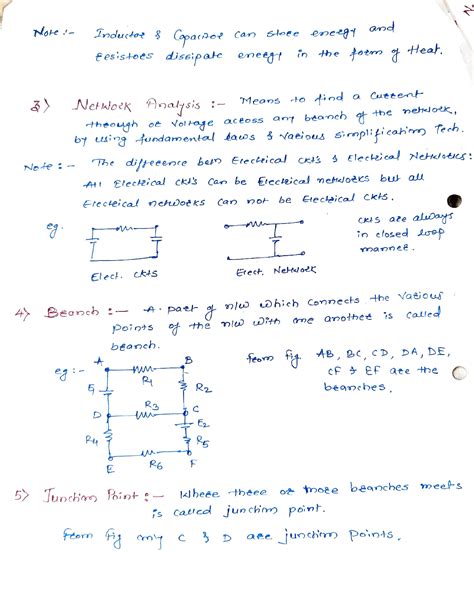 Note :- Inductor & Capacitor can store energy and
resistors dissipate energy in the form of Heat.
3) Network Analysis :- Means to find a current
through or voltage across any branch of the network,
by using fundamental laws & various simplification Tech.
Note :- The difference betn Electrical ckts & Electrical Networks:
All Electrical ckts can be Electrical networks but all
Electrical networks can not be Electrical ckts.
eg.
ckts are always
in closed loop
manner.
Elect. ckts
Elect. Network
4) Branch :- A part of n/w which connects the various
points of the n/w with one another is called
branch.
eg :-
A
B
R1
E1
R2
D
R3
C
E2
R4
R5
E
R6
F
from fig AB, BC, CD, DA, DE,
CF & EF are the
branches.
5) Junction Point :- Where three or more branches meets
is called junction point.
from fig only C & D are junction points.